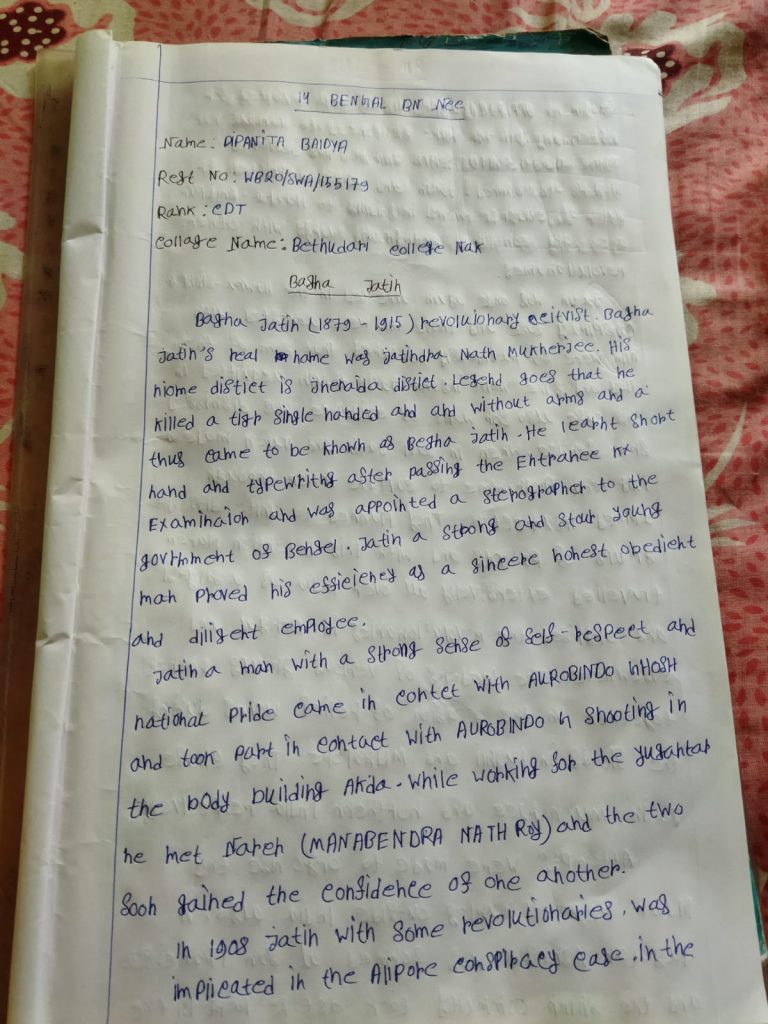 14 BENGAL BN NCC
Name: DIPANITA BAIDYA
Regt No: WBRO/SWA/155179
Rank: CDT
Collage Name: Bethudari college Nak
Bagha Jatin
Bagha Jatin (1879 - 1915) revolulionary ceitvist. Bagha
Jatin's real name was Jatindra Nath Mukherjee. His
home distict is Jhenaida distict. Legend goes that he
killed a tigr single handed and and without arms and a
thus came to be known as Begha Jatin. He learnt short
hand and typewritng after passing the Entrance
Examinaion and was appointed a stenographer to the
govrnment of Bengel. Jatin a strong and stour young
man proved his essiciency as a sincere honest obedient
and diligent emploee.
Jatin a man with a strong sense of self-respect and
national pride came in contct with AUROBINDO GHOSH
and took part in contact with AUROBINDO G shooting in
the body building Akda. While working for the yugantar
he met Naren (MANABENDRA NATH Roy) and the two
Soon gained the confidence of one another.
In 1908 Jatin with some revolutionaries, was
implicated in the Alipore conspiracy case. in the